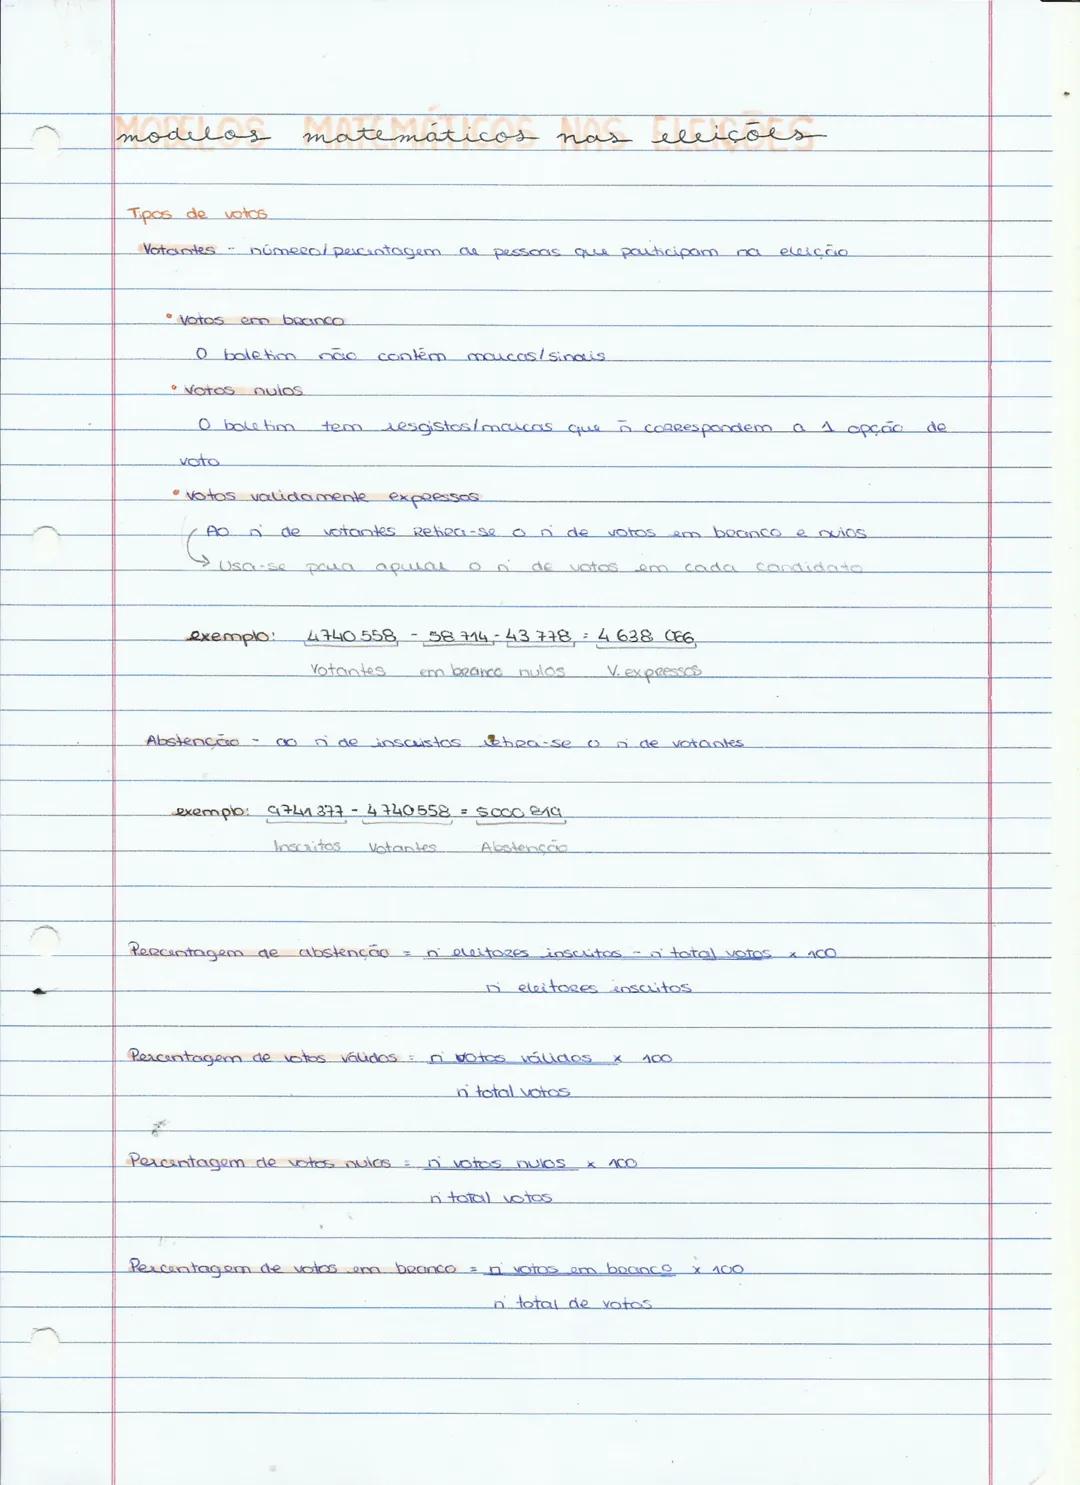 modelos matemáticos nas eleições
Tipos de votos
Votantes - número/percentagem de pessoas que participam na eleição
• Votos em branco
O boletim não contém marcas/sinais
• Votos nulos
O boletim tem resgistos/marcas que ñ correspondem a 1 opção de
voto
• Votos validamente expressos
Ao nº de votantes Retira-se o nº de votos em branco e nulos
↳ Usa-se para apurar o nº de votos em cada candidato
exemplo: 4740 558 - 58 714 - 43 778 = 4 638 066
Votantes em branco nulos V. expressos
Abstenção - ao nº de inscristos retira-se o nº de votantes
exemplo: 9741 377 - 4 740 558 = 5000 819
Inscritos Votantes Abstenção
Percentagem de abstenção = nº eleitores inscritos - nº total votos x 100
nº eleitores inscritos
Percentagem de votos válidos = nº votos válidos x 100
nº total votos
Percentagem de votos nulos = nº votos nulos x 100
nº total votos
Percentagem de votos em branco = nº votos em branco x 100
nº total de votos